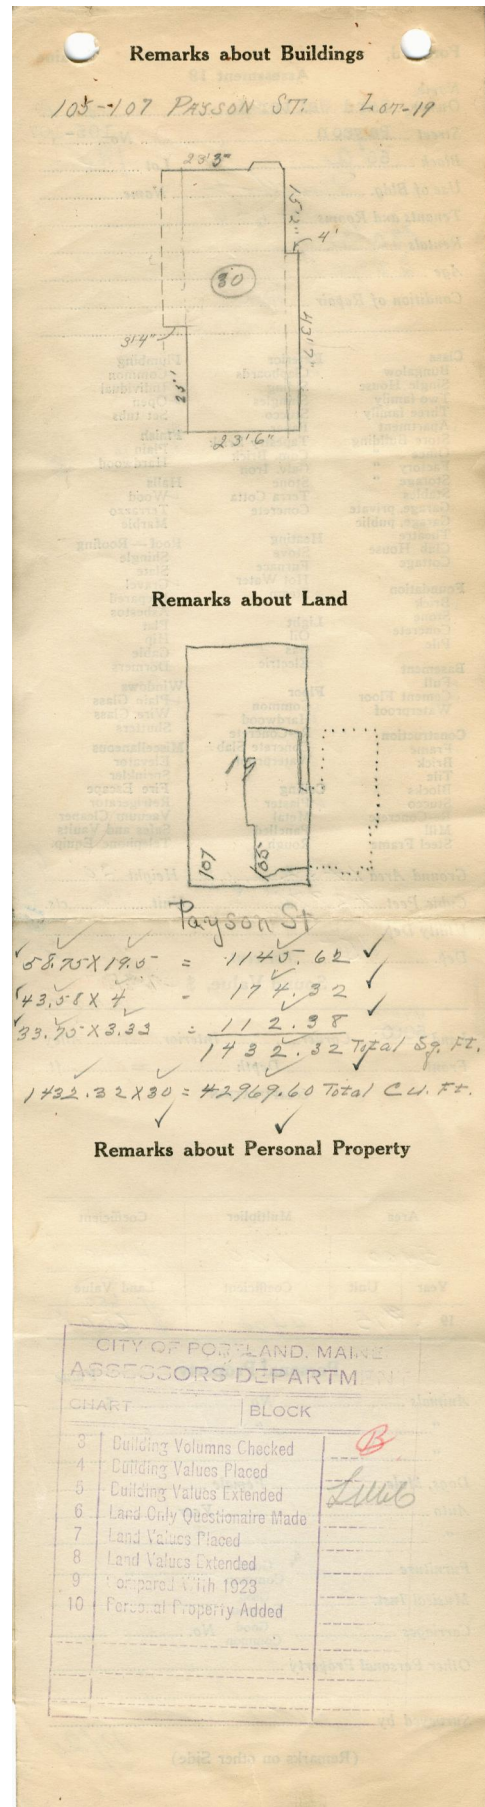 Remarks about Buildings
105-107 PAYSON ST. LOT-19
23'3"
15'2"
4'
30
3'4"
43'7"
25'
23'6"
Remarks about Land
19
107
105
Payson St
58.75 X 19.5 = 1145.62
43.58 X 4 = 174.32
33.75 X 3.33 = 112.38
1432.32 Total Sq. Ft.
1432.32 X 30 = 42969.60 Total Cu. Ft.
Remarks about Personal Property
CITY OF PORTLAND, MAINE
ASSESSORS DEPARTMENT
CHART BLOCK
3 Building Volumns Checked
B
4 Building Values Placed
5 Building Values Extended
6 Land Only Questionaire Made
7 Land Values Placed
8 Land Values Extended
9 Compared With 1923
10 Personal Property Added
(Remarks on other Side)